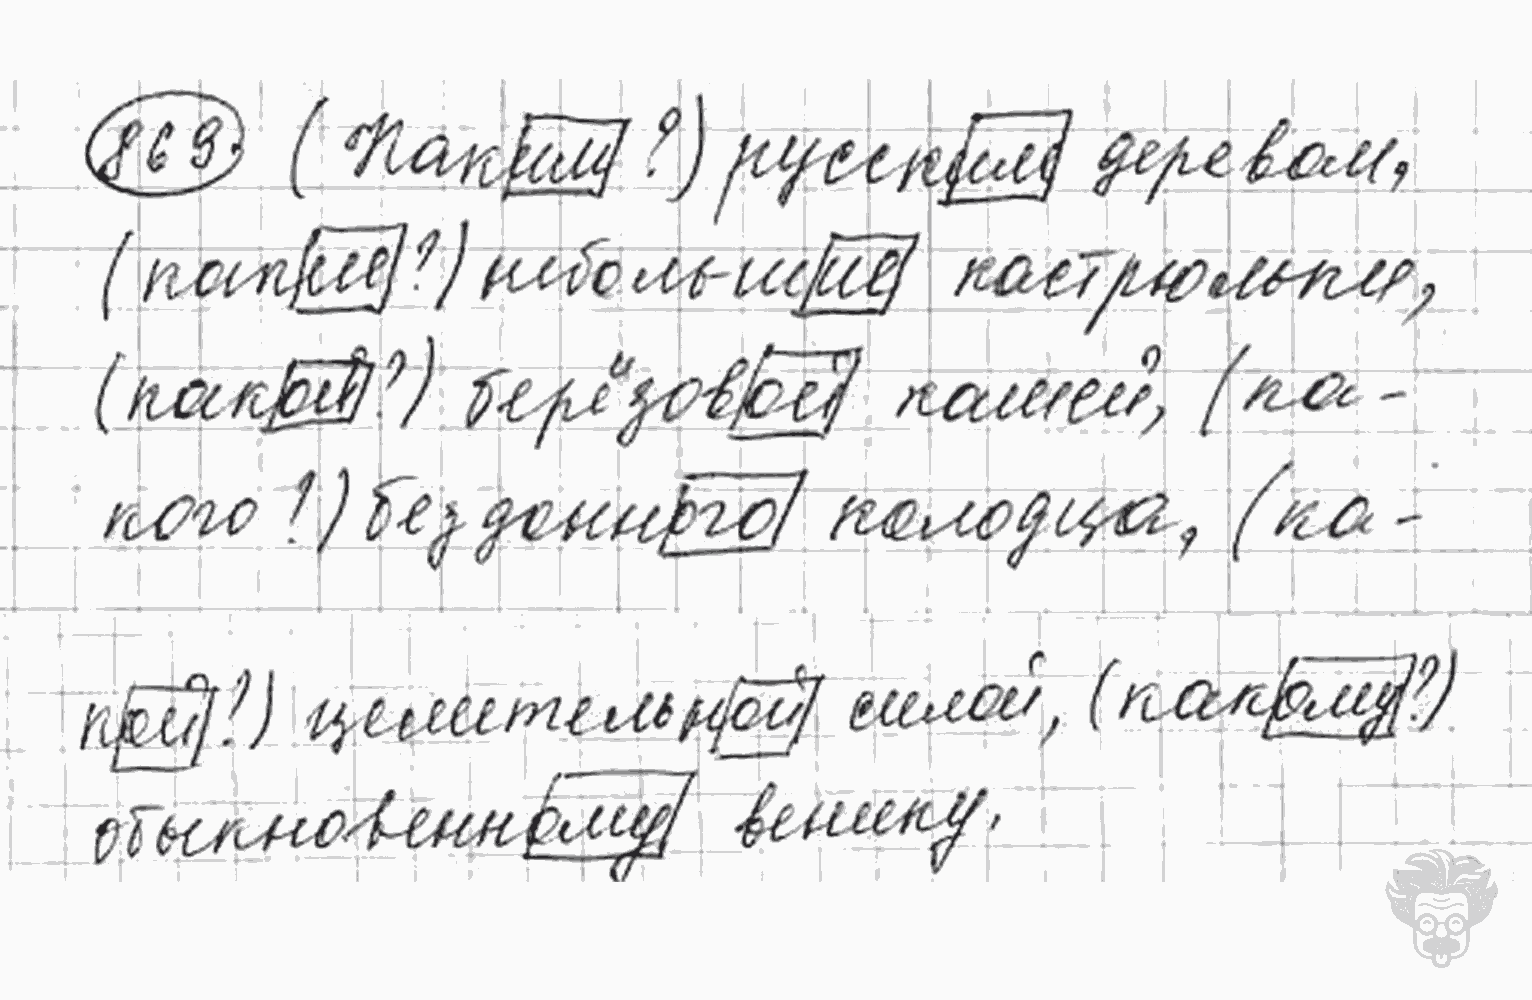 869. (Каким?) русским деревом,
(какие?) небольшие кастрюльки,
(какой?) берёзовой кашей, (ка-
кого?) бездонного колодца, (ка-
кой?) целительной силой, (какому?)
обыкновенному венику.